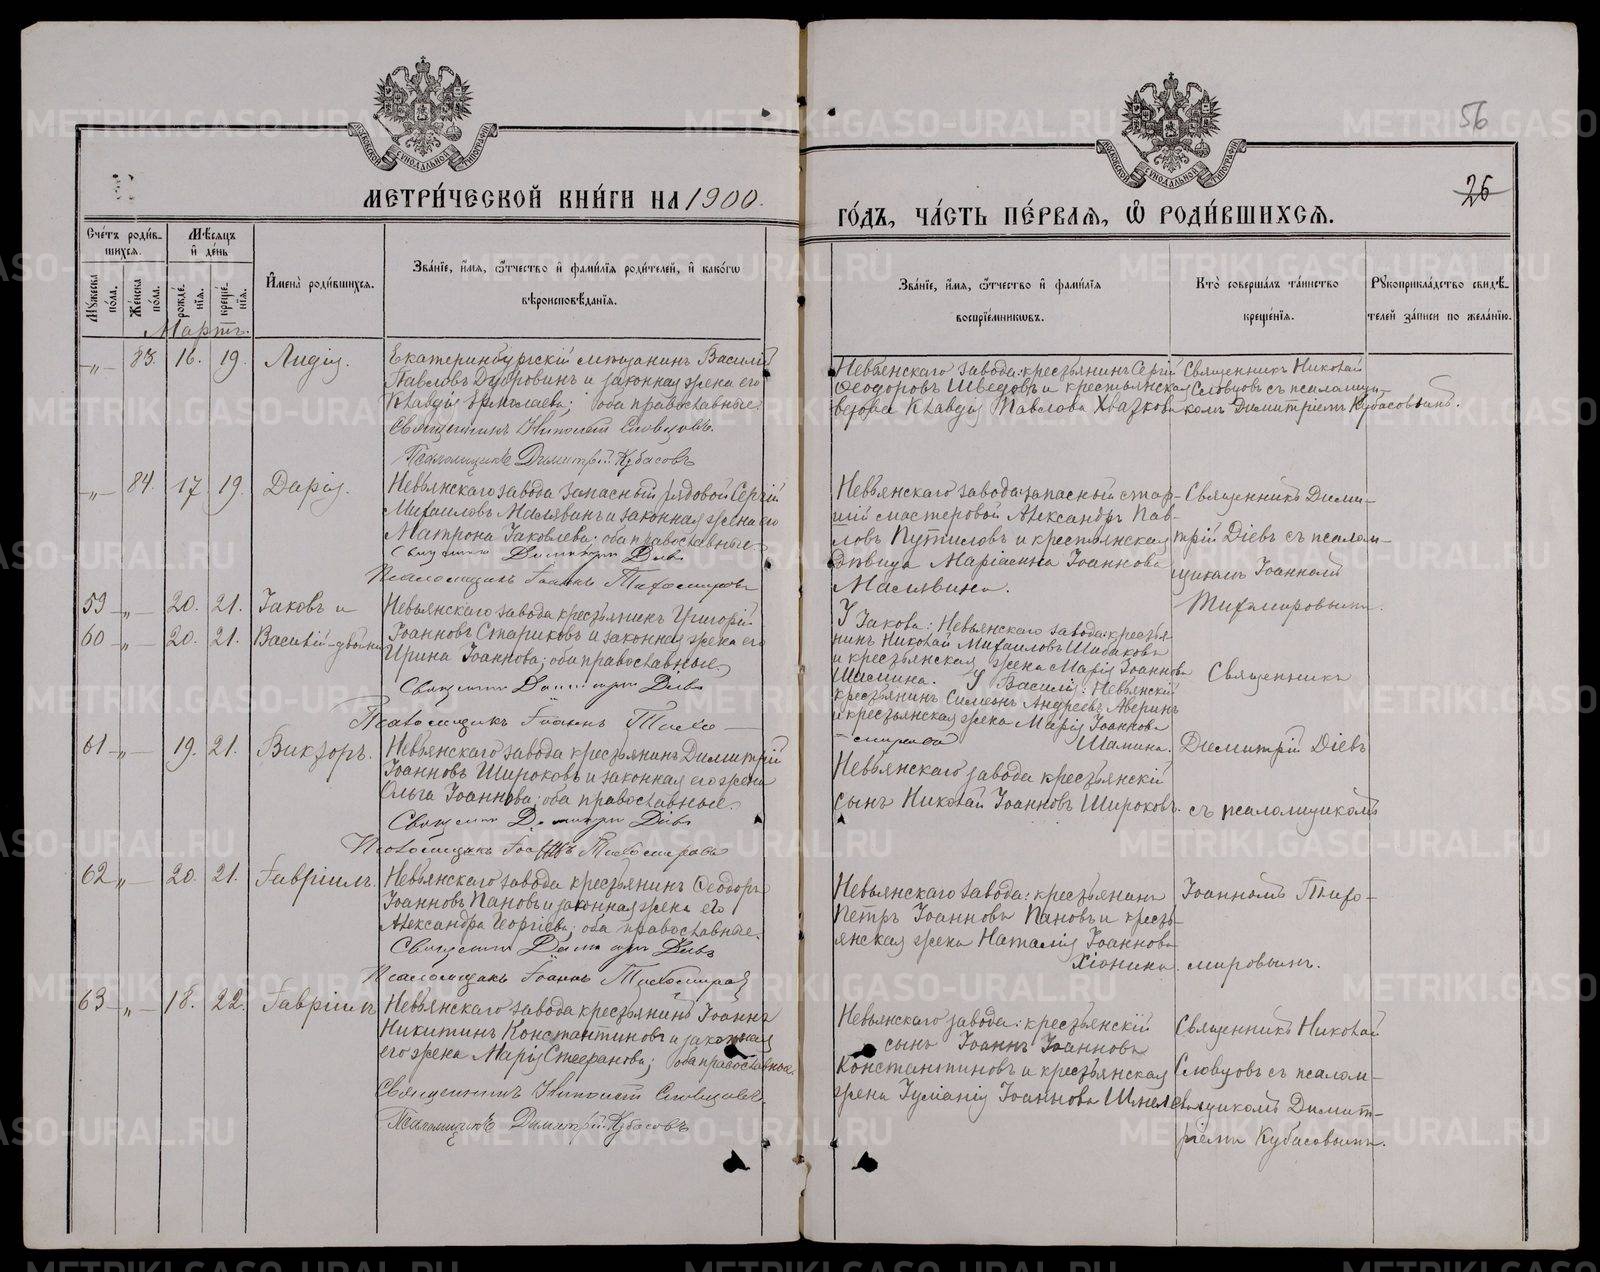 56
26
МЕТРИЧЕСКОЙ КНИГИ НА 1900.
ГОДЪ, ЧАСТЬ ПЕРВАЯ, Ѡ РОДИВШИХСЯ.
Счетъ родив-
шихся.
Мѣсяцъ
и день
Мужеска
пола.
Женска
пола.
рожде.
нія.
креще.
нія.
Имена родившихся.
Званіе, имя, ѿчество и фамилія родителей, и какогѡ
вѣроисповѣданія.
Званіе, имя, ѿчество и фамилія
воспріемникѡвъ.
Кто совершалъ таинство
крещенія.
Рукоприкладство свидѣ-
телей записи по желанію.
Мартъ.
-„- 83. 16. 19. Лидія.
Екатеринбургскій мѣщанинъ Василій
Павловъ Дубровинъ и законная жена его
Клавдія Николаева; оба православные.
Священникъ Николай Словцовъ.
Псаломщикъ Димитрій Кубасовъ
Невьянскаго завода: крестьянинъ Сергій
Ѳеодоровъ Шведовъ и крестьянская
Клавдія Павлова Хвазкова
Священникъ Николай
Словцовъ съ псаломщи-
комъ Димитріемъ Кубасовымъ.
-„- 84. 17 19. Дарія.
Невьянскаго завода запасный рядовой Сергій
Михаиловъ Малявинъ и законная жена его
Матрона Іаковлева; оба православные.
Священникъ Димитрій Діевъ
Псаломщикъ Іоаннъ Тихомировъ
Невьянскаго завода: запасной стар-
шій мастеровой Александръ Пав-
ловъ Путиловъ и крестьянская
дѣвица Маріанна Іоаннова
Малявина.
Священникъ Дими-
трій Діевъ съ псалом-
щикомъ Іоанномъ
Тихомировымъ.
59 „- 20. 21. Іаковъ и
60 „- 20. 21. Василій-двойни
Невьянскаго завода крестьянинъ Григорій
Іоанновъ Стариковъ и законная жена его
Ирина Іоаннова; оба православные.
Священникъ Димитрій Діевъ
Псаломщикъ Іоаннъ Тихо-
мировъ
У Іакова: Невьянскаго завода: крестья-
нинъ Николай Михаиловъ Шибаковъ
и крестьянская жена Марія Іоаннова
Шамина. У Василія: Невьянскій
крестьянинъ Симеонъ Андреевъ Аверинъ
и крестьянская жена Марія Іоаннова
Шамина.
Священникъ
61 „- 19. 21. Викторъ.
Невьянскаго завода крестьянинъ Димитрій
Іоанновъ Широковъ и законная его жена
Ольга Іоаннова; оба православные.
Священникъ Димитрій Діевъ
Псаломщикъ Іоаннъ Тихомировъ
Невьянскаго завода крестьянскій
сынъ Николай Іоанновъ Широковъ.
Димитрій Діевъ
съ псаломщикомъ
62 „- 20. 21. Гавріилъ.
Невьянскаго завода крестьянинъ Ѳеодоръ
Іоанновъ Пановъ и законная жена его
Александра Георгіева; оба православные.
Священникъ Димитрій Діевъ
Псаломщикъ Іоаннъ Тихомировъ
Невьянскаго завода: крестьянинъ
Петръ Іоанновъ Пановъ и кресть-
янская жена Наталія Іоаннова
Хіонина.
Іоанномъ Тихо-
мировымъ.
63 „- 18. 22. Гавріилъ
Невьянскаго завода крестьянинъ Іоаннъ
Никитинъ Константиновъ и законная
его жена Марія Стефанова; оба православные.
Священникъ Николай Словцовъ.
Псаломщикъ Димитрій Кубасовъ
Невьянскаго завода: крестьянскій
сынъ Іоаннъ Іоанновъ
Константиновъ и крестьянская
жена Іуліанія Іоаннова
Священникъ Николай
Словцовъ съ псалом-
щикомъ Димит-
ріемъ Кубасовымъ.
METRIKI.GASO-URAL.RU